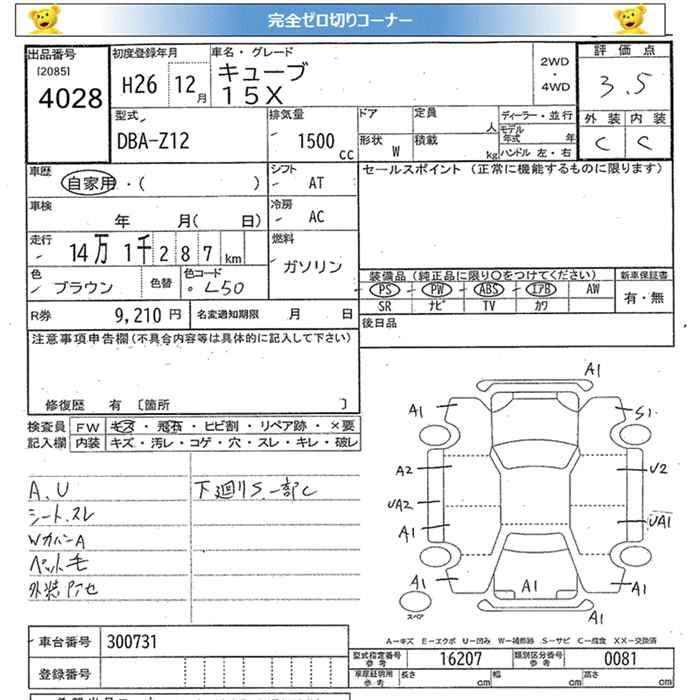 完全ゼロ切りコーナー
出品番号
[2085]
4028
初度登録年月
H26 12月
車名・グレード
キューブ
15X
2WD
・
4WD
評価点
3.5
外装 内装
C C
型式
DBA-Z12
排気量
1500 cc
ドア
形状
W
定員
人
積載
kg
ディーラー・並行
モデル年式 年
ハンドル 左・右
車歴
自家用・( )
シフト
AT
セールスポイント (正常に機能するものに限ります)
車検
年 月( 日)
冷房
AC
走行
14万1千287km
燃料
ガソリン
色
ブラウン
色替
色コード
L50
装備品 (純正品に限り〇をつけてください)
PS PW ABS エアB AW
SR ナビ TV カワ
新車保証書
有・無
R券 9,210 円
名変通知期限 月 日
後日品
注意事項申告欄(不具合内容等は具体的に記入して下さい)
修復歴 有 〔箇所 〕
検査員記入欄
FW キズ・飛石・ヒビ割・リペア跡・×要
内装 キズ・汚レ・コゲ・穴・スレ・キレ・破レ
A.U
シート.スレ
WカバーA
ペット毛
外装アセ
下廻りS.一部C
A1
A1
S1
A2
U2
UA2
A1
UA1
A1
A1
A1
A1
スペア
A−キズ E−エクボ U−凹み W−補修跡 S−サビ C−腐食 XX−交換済
車台番号 300731
型式指定番号 参考 16207
類別区分番号 参考 0081
登録番号
車庫証明用 参考
長さ cm 幅 cm 高さ cm